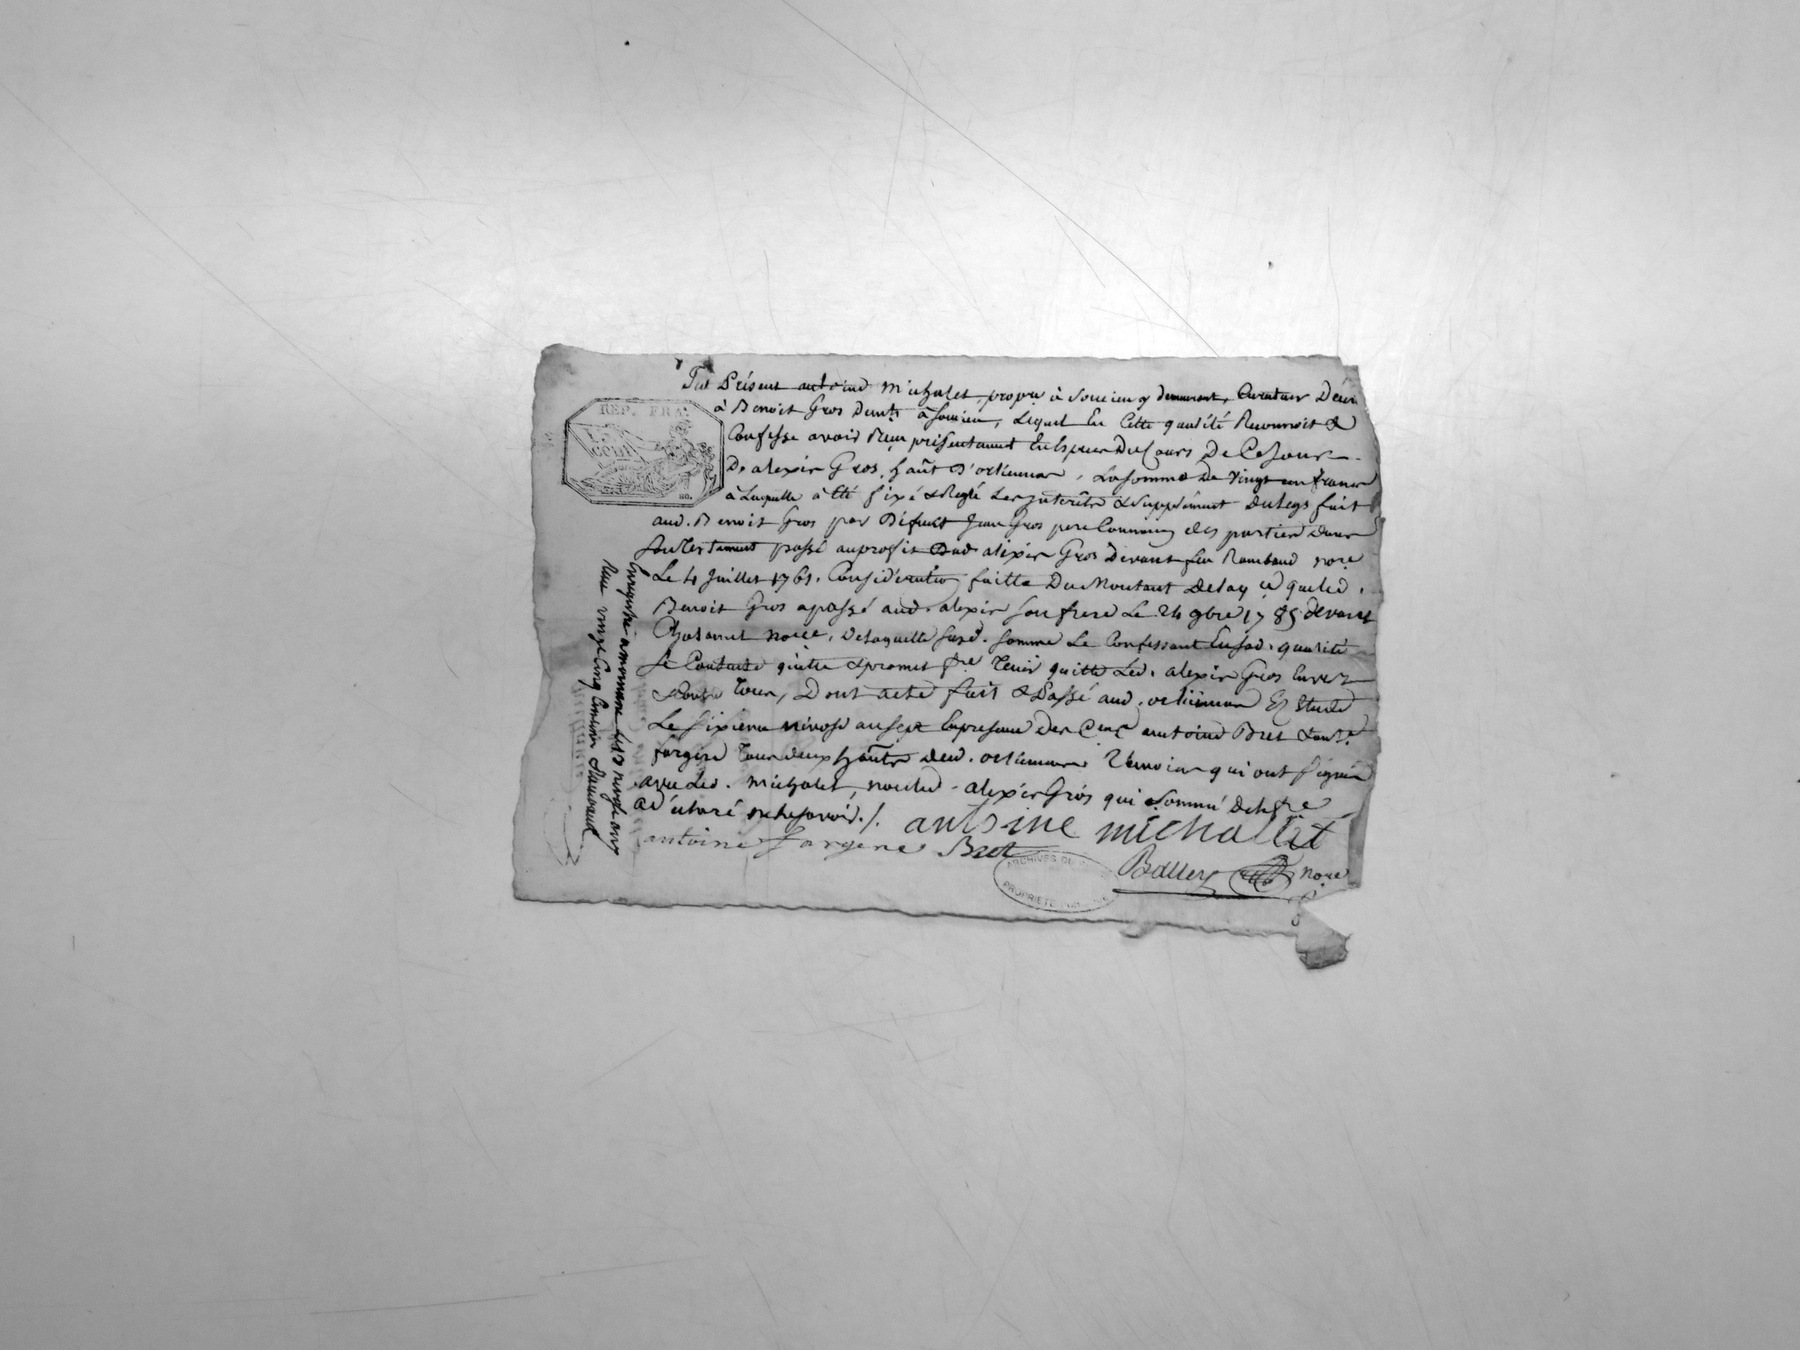 Fut Présent antoine Michalet, propre à Soucieu y demeurant, Curateur Déce
à Benoit Gros Demt à Soucieu, Lequel En Cette qualité Reconnoit &
Confesse avoir Reçu présentement En Especes Du Cours De Ce Jour
D'alexis Gros, hant D'orliennas, La somme De Vingt un francs
à Laquelle à Eté fixé & Reglé Les Interêts & Supplément Du legs fait
aud. Benoit Gros par Défunt Jean Gros pere Commun des parties Dans
Son Testament passé au profit Dud. alexis Gros Devant feu Rambaud nore
Le 4 Juillet 1761. Considération faitte Du Montant De la q que led.
Benoit Gros a passé aud. alexis son frere Le 24 9bre 1785 devant
nore, De laquelle susd. somme Le Confessant En sad. qualité
Se Contente quitte & promet fre Tenir quitte Led. alexis Gros Envers
& Contre Tous, Dont acte fait & Passé aud. orliennas Es Etude
Le sixieme nivose an sept En presence Des Cens antoine Bret & ante
fargere Tous deux hants dud. orliennas Temoins qui ont signé
avec Led. Michalet, non Led. alexis Gros qui sommé de le fre
a Déclaré ne le savoir ./.
antoine michallet
antoine fargere Bret
nore
REP. FRA.
ARCHIVES DU
PROPRIETE PUBLIQUE
Enregistré a mornant le 13 nivose an 7
Reçu vingt Cinq Centimes Rambaud